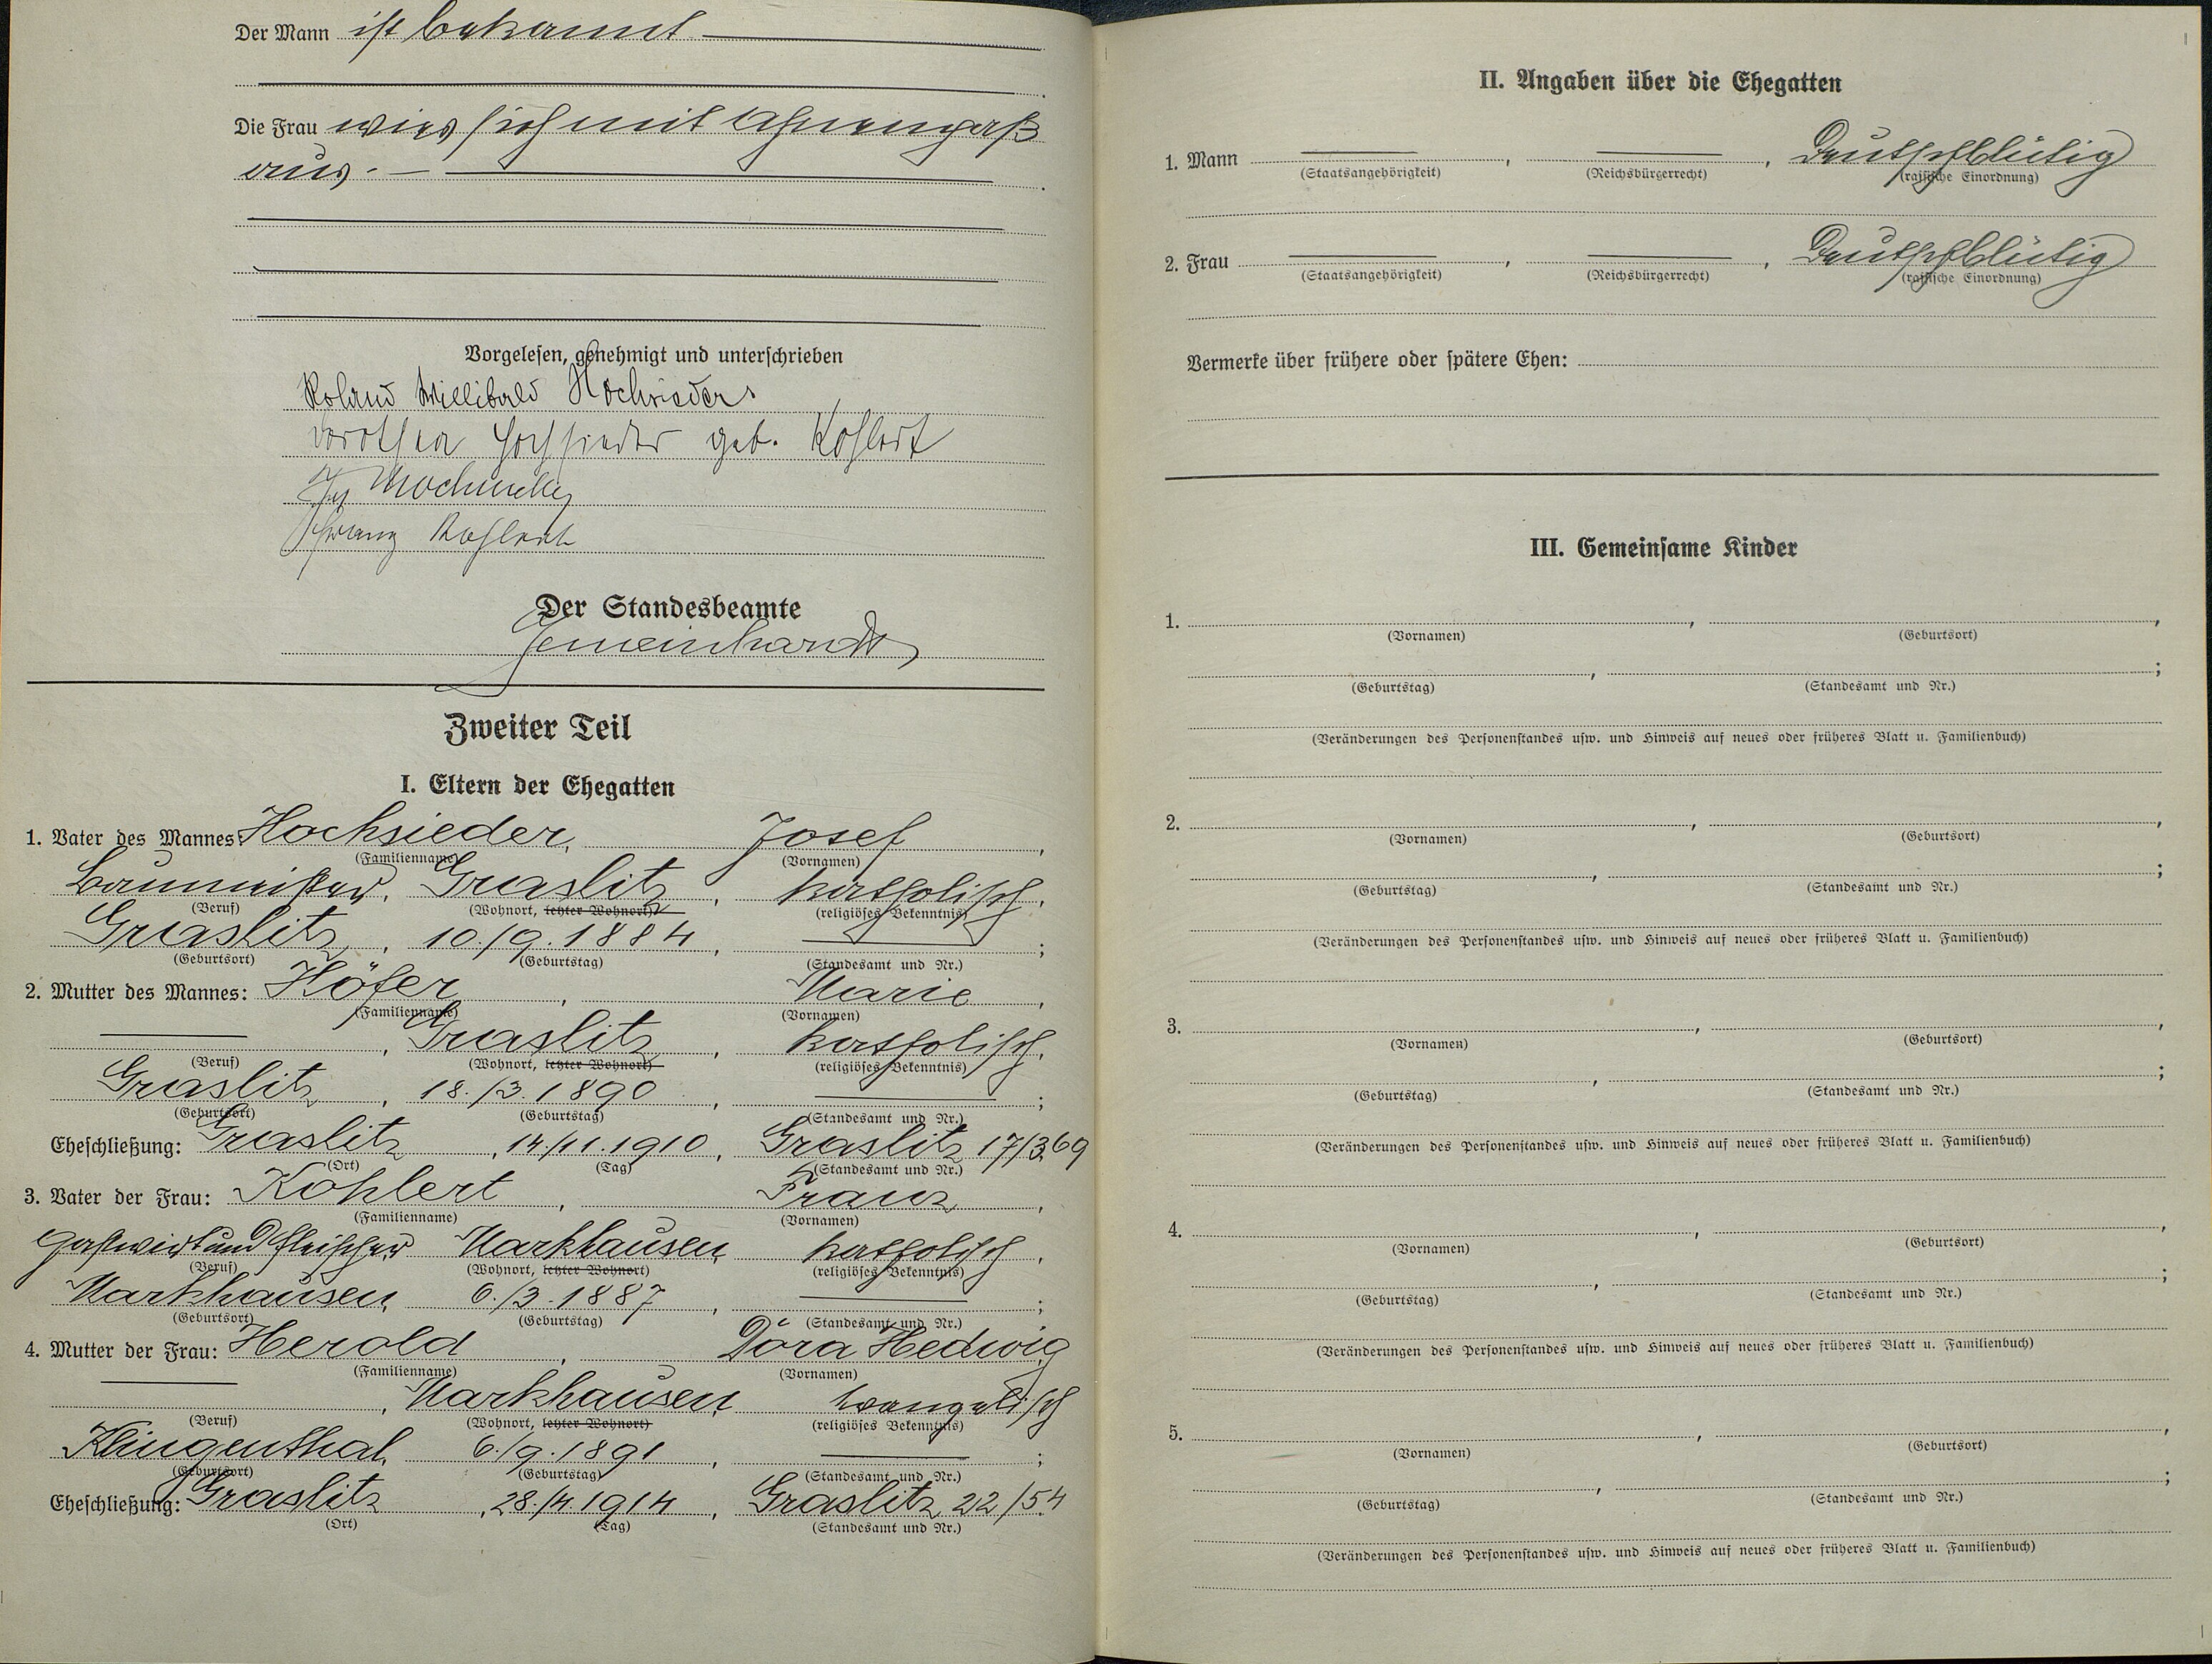 Der Mann ist bekannt
Die Frau wies sich mit Ahnenpaß
aus.
Vorgelesen, genehmigt und unterschrieben
Roland Willibald Hochsieder
Dorothea Hochsieder geb. Kohlert
Franz Kohlert
Der Standesbeamte
Gemeinhardt
Zweiter Teil
I. Eltern der Ehegatten
1. Vater des Mannes: Hochsieder, Josef,
(Familienname) (Vornamen)
Baumeister, Graslitz, katholisch,
(Beruf) (Wohnort, letzter Wohnort) (religiöses Bekenntnis)
Graslitz, 10./9.1884, ;
(Geburtsort) (Geburtstag) (Standesamt und Nr.)
2. Mutter des Mannes: Höfer, Marie,
(Familienname) (Vornamen)
, Graslitz, katholisch,
(Beruf) (Wohnort, letzter Wohnort) (religiöses Bekenntnis)
Graslitz, 18./3.1890, ;
(Geburtsort) (Geburtstag) (Standesamt und Nr.)
Eheschließung: Graslitz, 14./11.1910, Graslitz 17/369
(Ort) (Tag) (Standesamt und Nr.)
3. Vater der Frau: Kohlert, Franz,
(Familienname) (Vornamen)
Gastwirt und Fleischer Markhausen, katholisch,
(Beruf) (Wohnort, letzter Wohnort) (religiöses Bekenntnis)
Markhausen, 6./3.1887, ;
(Geburtsort) (Geburtstag) (Standesamt und Nr.)
4. Mutter der Frau: Herold, Dora Hedwig
(Familienname) (Vornamen)
, Markhausen, evangelisch
(Beruf) (Wohnort, letzter Wohnort) (religiöses Bekenntnis)
Klingenthal, 6./9.1891, ;
(Geburtsort) (Geburtstag) (Standesamt und Nr.)
Eheschließung: Graslitz, 28./4.1914, Graslitz 22/54
(Ort) (Tag) (Standesamt und Nr.)
II. Angaben über die Ehegatten
1. Mann , , Deutschblütig
(Staatsangehörigkeit) (Reichsbürgerrecht) (rassische Einordnung)
2. Frau , , Deutschblütig
(Staatsangehörigkeit) (Reichsbürgerrecht) (rassische Einordnung)
Vermerke über frühere oder spätere Ehen:
III. Gemeinsame Kinder
1. , ,
(Vornamen) (Geburtsort)
, ;
(Geburtstag) (Standesamt und Nr.)
(Veränderungen des Personenstandes usw. und Hinweis auf neues oder früheres Blatt u. Familienbuch)
2. , ,
(Vornamen) (Geburtsort)
, ;
(Geburtstag) (Standesamt und Nr.)
(Veränderungen des Personenstandes usw. und Hinweis auf neues oder früheres Blatt u. Familienbuch)
3. , ,
(Vornamen) (Geburtsort)
, ;
(Geburtstag) (Standesamt und Nr.)
(Veränderungen des Personenstandes usw. und Hinweis auf neues oder früheres Blatt u. Familienbuch)
4. , ,
(Vornamen) (Geburtsort)
, ;
(Geburtstag) (Standesamt und Nr.)
(Veränderungen des Personenstandes usw. und Hinweis auf neues oder früheres Blatt u. Familienbuch)
5. , ,
(Vornamen) (Geburtsort)
, ;
(Geburtstag) (Standesamt und Nr.)
(Veränderungen des Personenstandes usw. und Hinweis auf neues oder früheres Blatt u. Familienbuch)